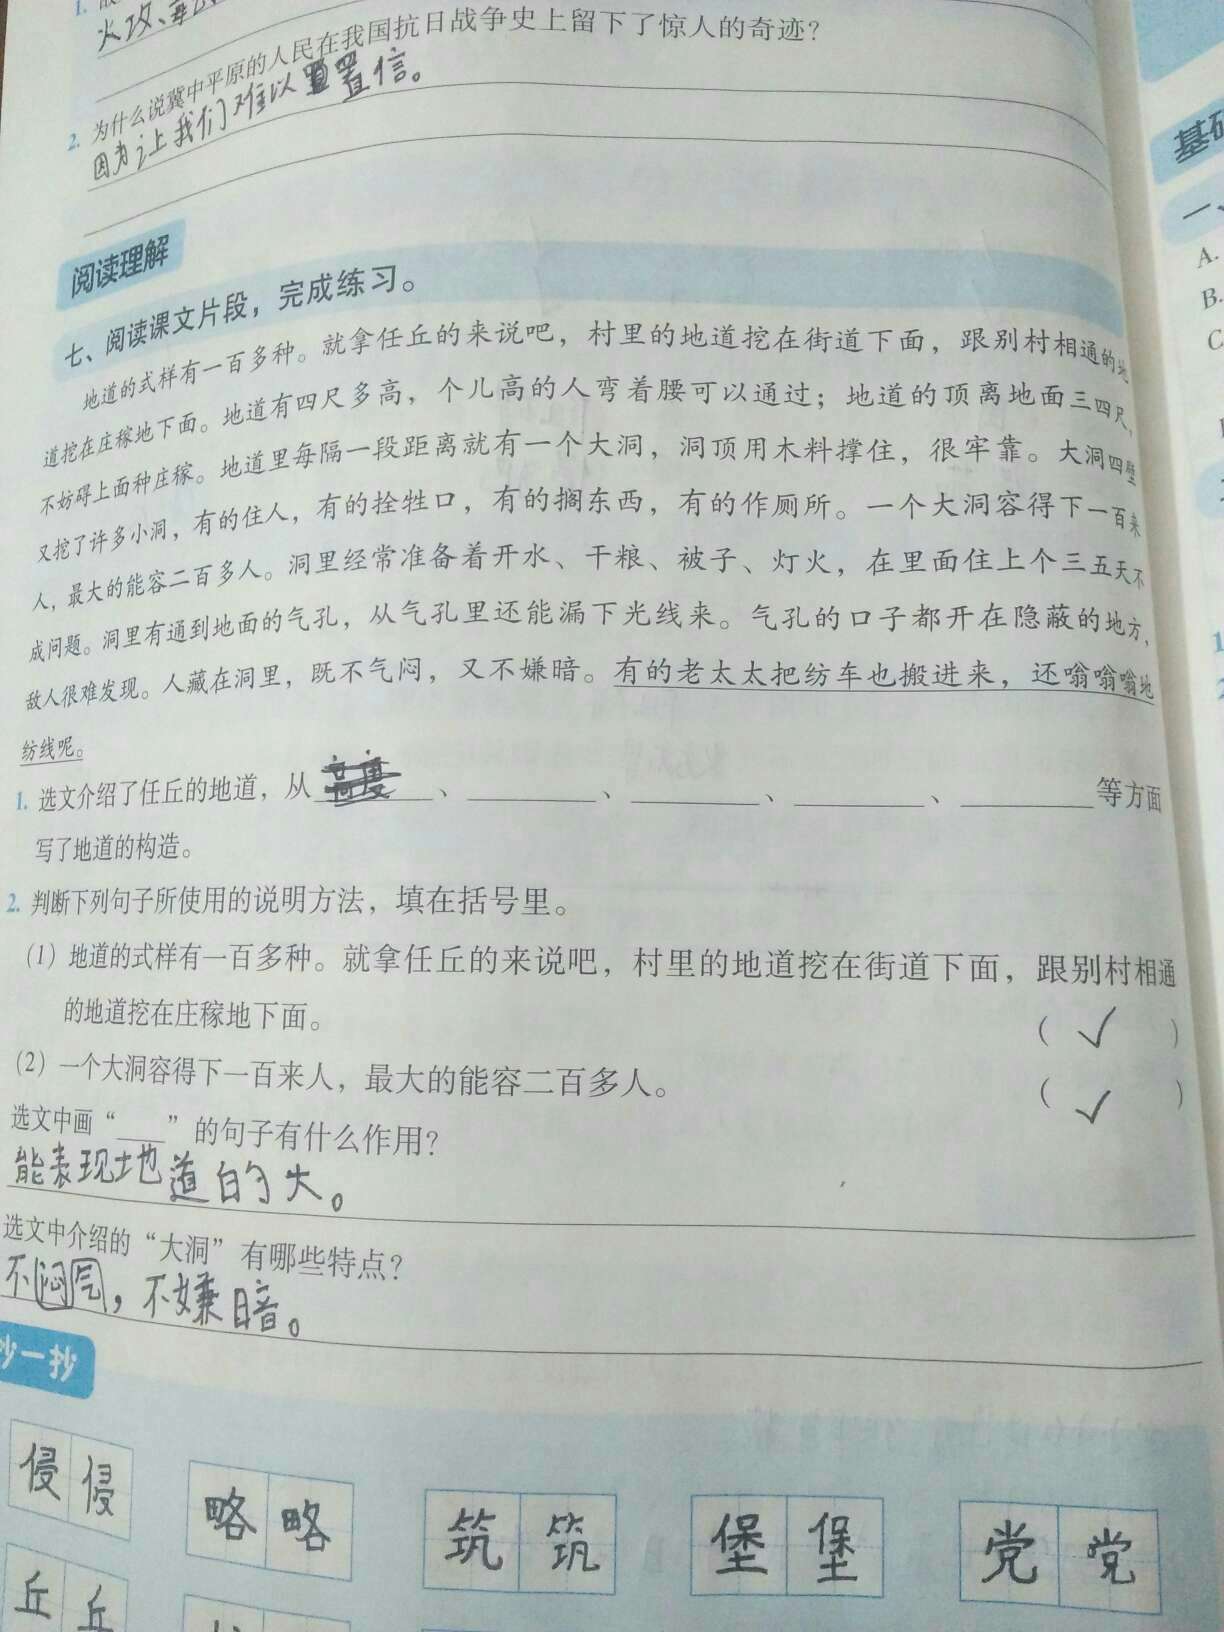 1.
火攻、毒
2. 为什么说冀中平原的人民在我国抗日战争史上留下了惊人的奇迹？
因为让我们难以置信。
阅读理解
七、阅读课文片段，完成练习。
地道的式样有一百多种。就拿任丘的来说吧，村里的地道挖在街道下面，跟别村相通的地
道挖在庄稼地下面。地道有四尺多高，个儿高的人弯着腰可以通过；地道的顶离地面三四尺，
不妨碍上面种庄稼。地道里每隔一段距离就有一个大洞，洞顶用木料撑住，很牢靠。大洞四壁
又挖了许多小洞，有的住人，有的拴牲口，有的搁东西，有的作厕所。一个大洞容得下一百来
人，最大的能容二百多人。洞里经常准备着开水、干粮、被子、灯火，在里面住上个三五天不
成问题。洞里有通到地面的气孔，从气孔里还能漏下光线来。气孔的口子都开在隐蔽的地方，
敌人很难发现。人藏在洞里，既不气闷，又不嫌暗。有的老太太把纺车也搬进来，还嗡嗡嗡地
纺线呢。
1. 选文介绍了任丘的地道，从高度、、、、等方面
写了地道的构造。
2. 判断下列句子所使用的说明方法，填在括号里。
(1) 地道的式样有一百多种。就拿任丘的来说吧，村里的地道挖在街道下面，跟别村相通
的地道挖在庄稼地下面。 ( ✓ )
(2) 一个大洞容得下一百来人，最大的能容二百多人。 ( ✓ )
选文中画“___”的句子有什么作用？
能表现地道的大。
选文中介绍的“大洞”有哪些特点？
不闷气，不嫌暗。
抄一抄
侵侵 略略 筑筑 堡堡 党党
丘丘
基础
一、
A.
B.
C
1
2